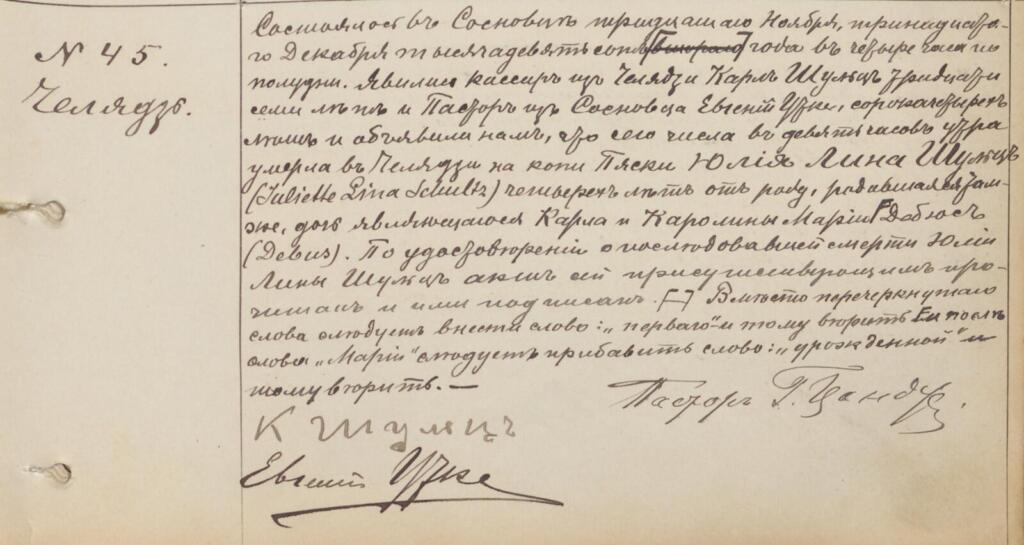 N 45.
Челядзь.
Состоялось въ Сосновцѣ тридцатаго Ноября, тринадцата-
го Декабря тысяча девятьсотъ [втораго] года въ четыре часа по
полудни. Явились кассиръ изъ Челядзи Карлъ Шульцъ тридцати
семи лѣтъ и Пасторъ изъ Сосновца Евгеній Утке, сорока четырехъ
лѣтъ и объявили намъ, что сего числа въ девять часовъ утра
умерла въ Челядзи на копи Пяски Юлія Лина Шульцъ
(Juliette Lina Schultz) четырехъ лѣтъ отъ роду, родившаяся там-
же, дочь являющагося Карла и Каролины Маріи Дебюсъ
(Debus). По удостовѣреніи о послѣдовавшей смерти Юліи
Лины Шульцъ актъ сей присутствующимъ про-
читанъ и ими подписанъ. [—] Вмѣсто перечеркнутаго
слова слѣдуетъ внести слово: „перваго" и тому вѣрить и послѣ
слова „Маріи" слѣдуетъ прибавить слово: „урожденной" и
тому вѣрить. —
Пасторъ Г. Тцандеръ.
К Шульцъ
Евгеній Утке